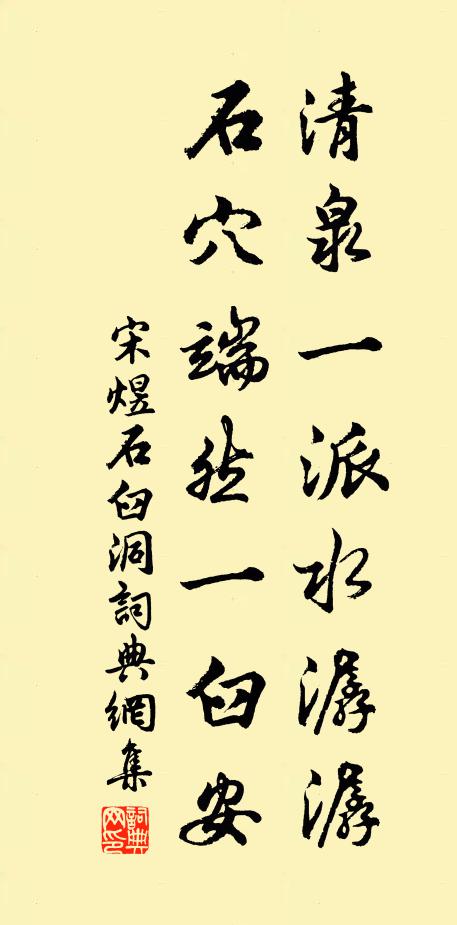 清泉一派水潺潺
石穴端然一臼安
宋煜石臼洞詞典網集
詞典網印